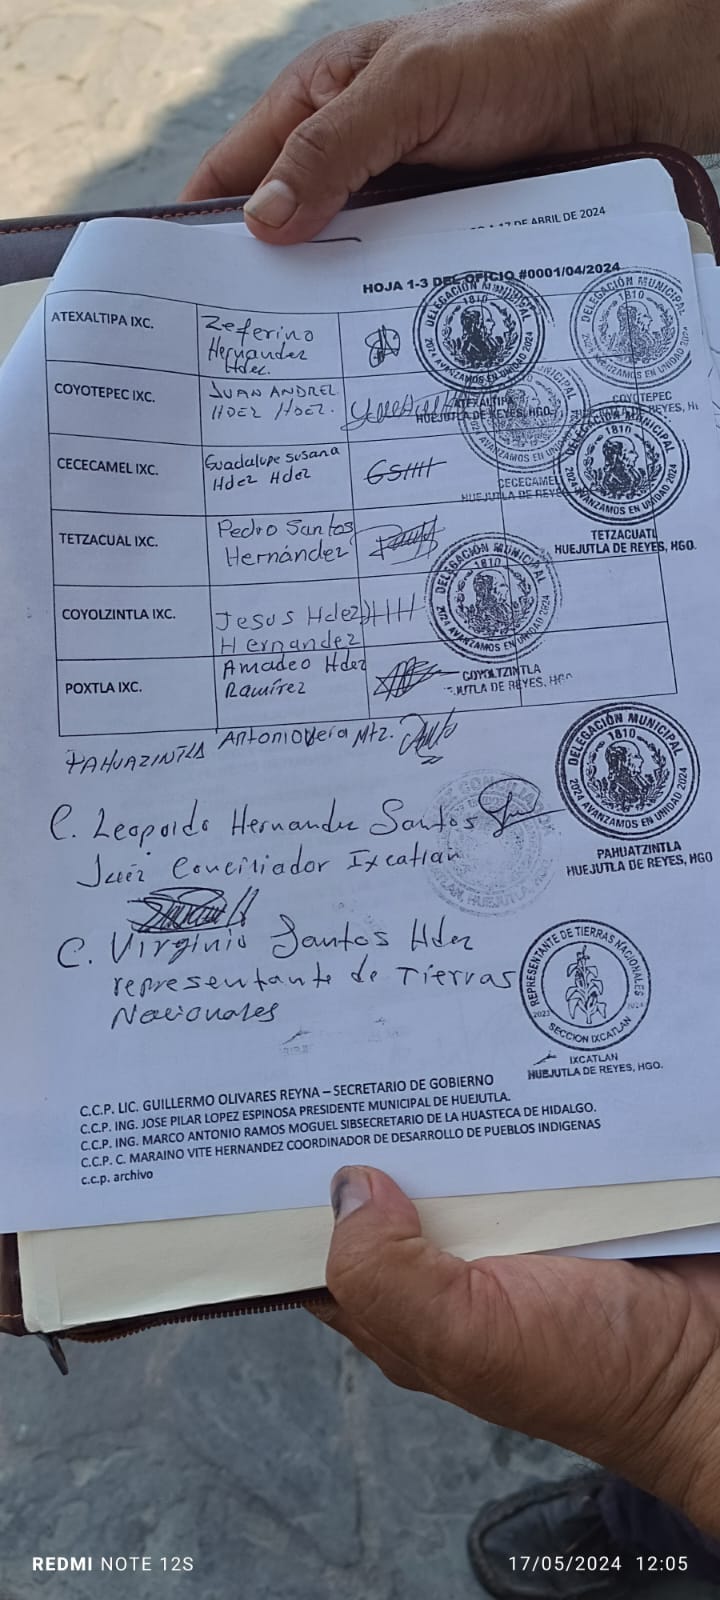 17 DE ABRIL DE 2024
HOJA 1-3 DEL OFICIO #0001/04/2024
ATEXALTIPA IXC.
Zeferino
Hernandez
Hdez.
COYOTEPEC IXC.
JUAN ANDREZ
HDEZ HDEZ.
CECECAMEL IXC.
Guadalupe susana
Hdez Hdez
TETZACUAL IXC.
Pedro Santos
Hernández
COYOLZINTLA IXC.
Jesus Hdez
Hernandez
POXTLA IXC.
Amadeo Hdez
Ramírez
DELEGACIÓN MUNICIPAL
1810
2024 AVANZAMOS EN UNIDAD 2024
ATEXALTIPA
HUEJUTLA DE REYES, HGO.
DELEGACIÓN MUNICIPAL
1810
2024 AVANZAMOS EN UNIDAD 2024
COYOTEPEC
REYES, H
1810
AVANZAMOS EN UNIDAD
CECECAMEL
HUEJUTLA DE REYE
DELEGACIÓN MUNICIPAL
1810
2024 AVANZAMOS EN UNIDAD 2024
TETZACUATL
HUEJUTLA DE REYES, HGO.
DELEGACIÓN MUNICIPAL
1810
2024 AVANZAMOS EN UNIDAD 2024
COYOLTZINTLA
JUTLA DE REYES, HGO
PAHUAZINTLA Antonio Vera Mtz.
DELEGACIÓN MUNICIPAL
1810
2024 AVANZAMOS EN UNIDAD 2024
PAHUATZINTLA
HUEJUTLA DE REYES, HGO
C. Leopoldo Hernandez Santos
Juez Conciliador Ixcatlan
C. Virginio Santos Hdez
representante de Tierras
Nacionales
REPRESENTANTE DE TIERRAS NACIONALES
2023 2024
SECCION IXCATLAN
IXCATLAN
HUEJUTLA DE REYES, HGO.
C.C.P. LIC. GUILLERMO OLIVARES REYNA – SECRETARIO DE GOBIERNO
C.C.P. ING. JOSE PILAR LOPEZ ESPINOSA PRESIDENTE MUNICIPAL DE HUEJUTLA.
C.C.P. ING. MARCO ANTONIO RAMOS MOGUEL SIBSECRETARIO DE LA HUASTECA DE HIDALGO.
C.C.P. C. MARAINO VITE HERNANDEZ COORDINADOR DE DESARROLLO DE PUEBLOS INDIGENAS
c.c.p. archivo
REDMI NOTE 12S
17/05/2024 12:05